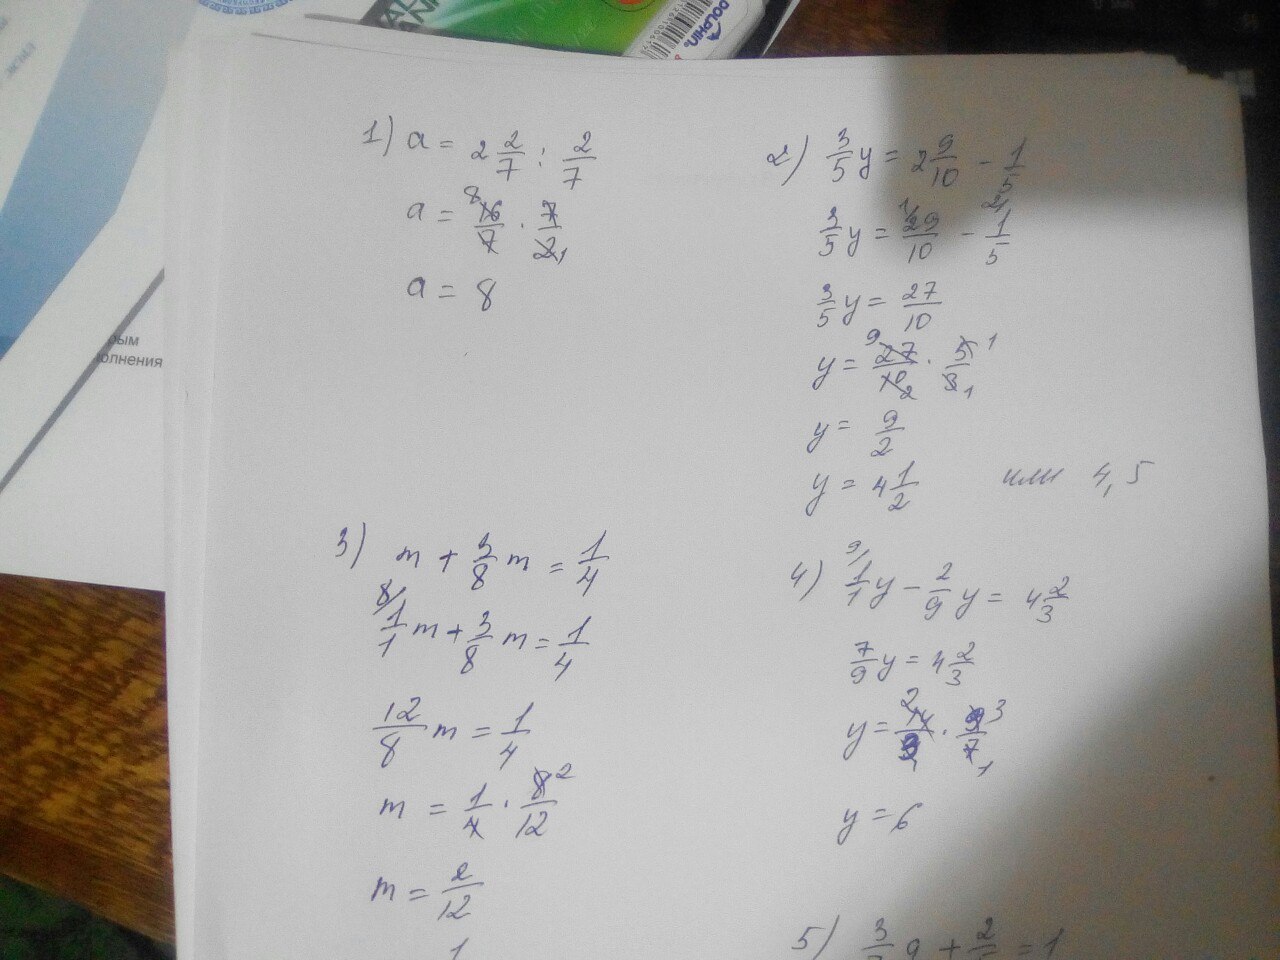 DOLPHIN
рым
олнения
1) a = 2 2/7 : 2/7
a = 16/7 · 7/2 8 1
a = 8
2) 3/5 y = 2 9/10 - 1/5
3/5 y = 29/10 - 1/5 1/ 2/
3/5 y = 27/10
y = 27/10 · 5/3 9 2 1 1
y = 9/2
y = 4 1/2 или 4,5
3) m + 3/8 m = 1/4
8/ 1/1 m + 3/8 m = 1/4
12/8 m = 1/4
m = 1/4 · 8/12 2
m = 2/12
1
4) 9/ 1/1 y - 2/9 y = 4 2/3
7/9 y = 4 2/3
y = 14/3 · 9/7 2 1 3 1
y = 6
5)